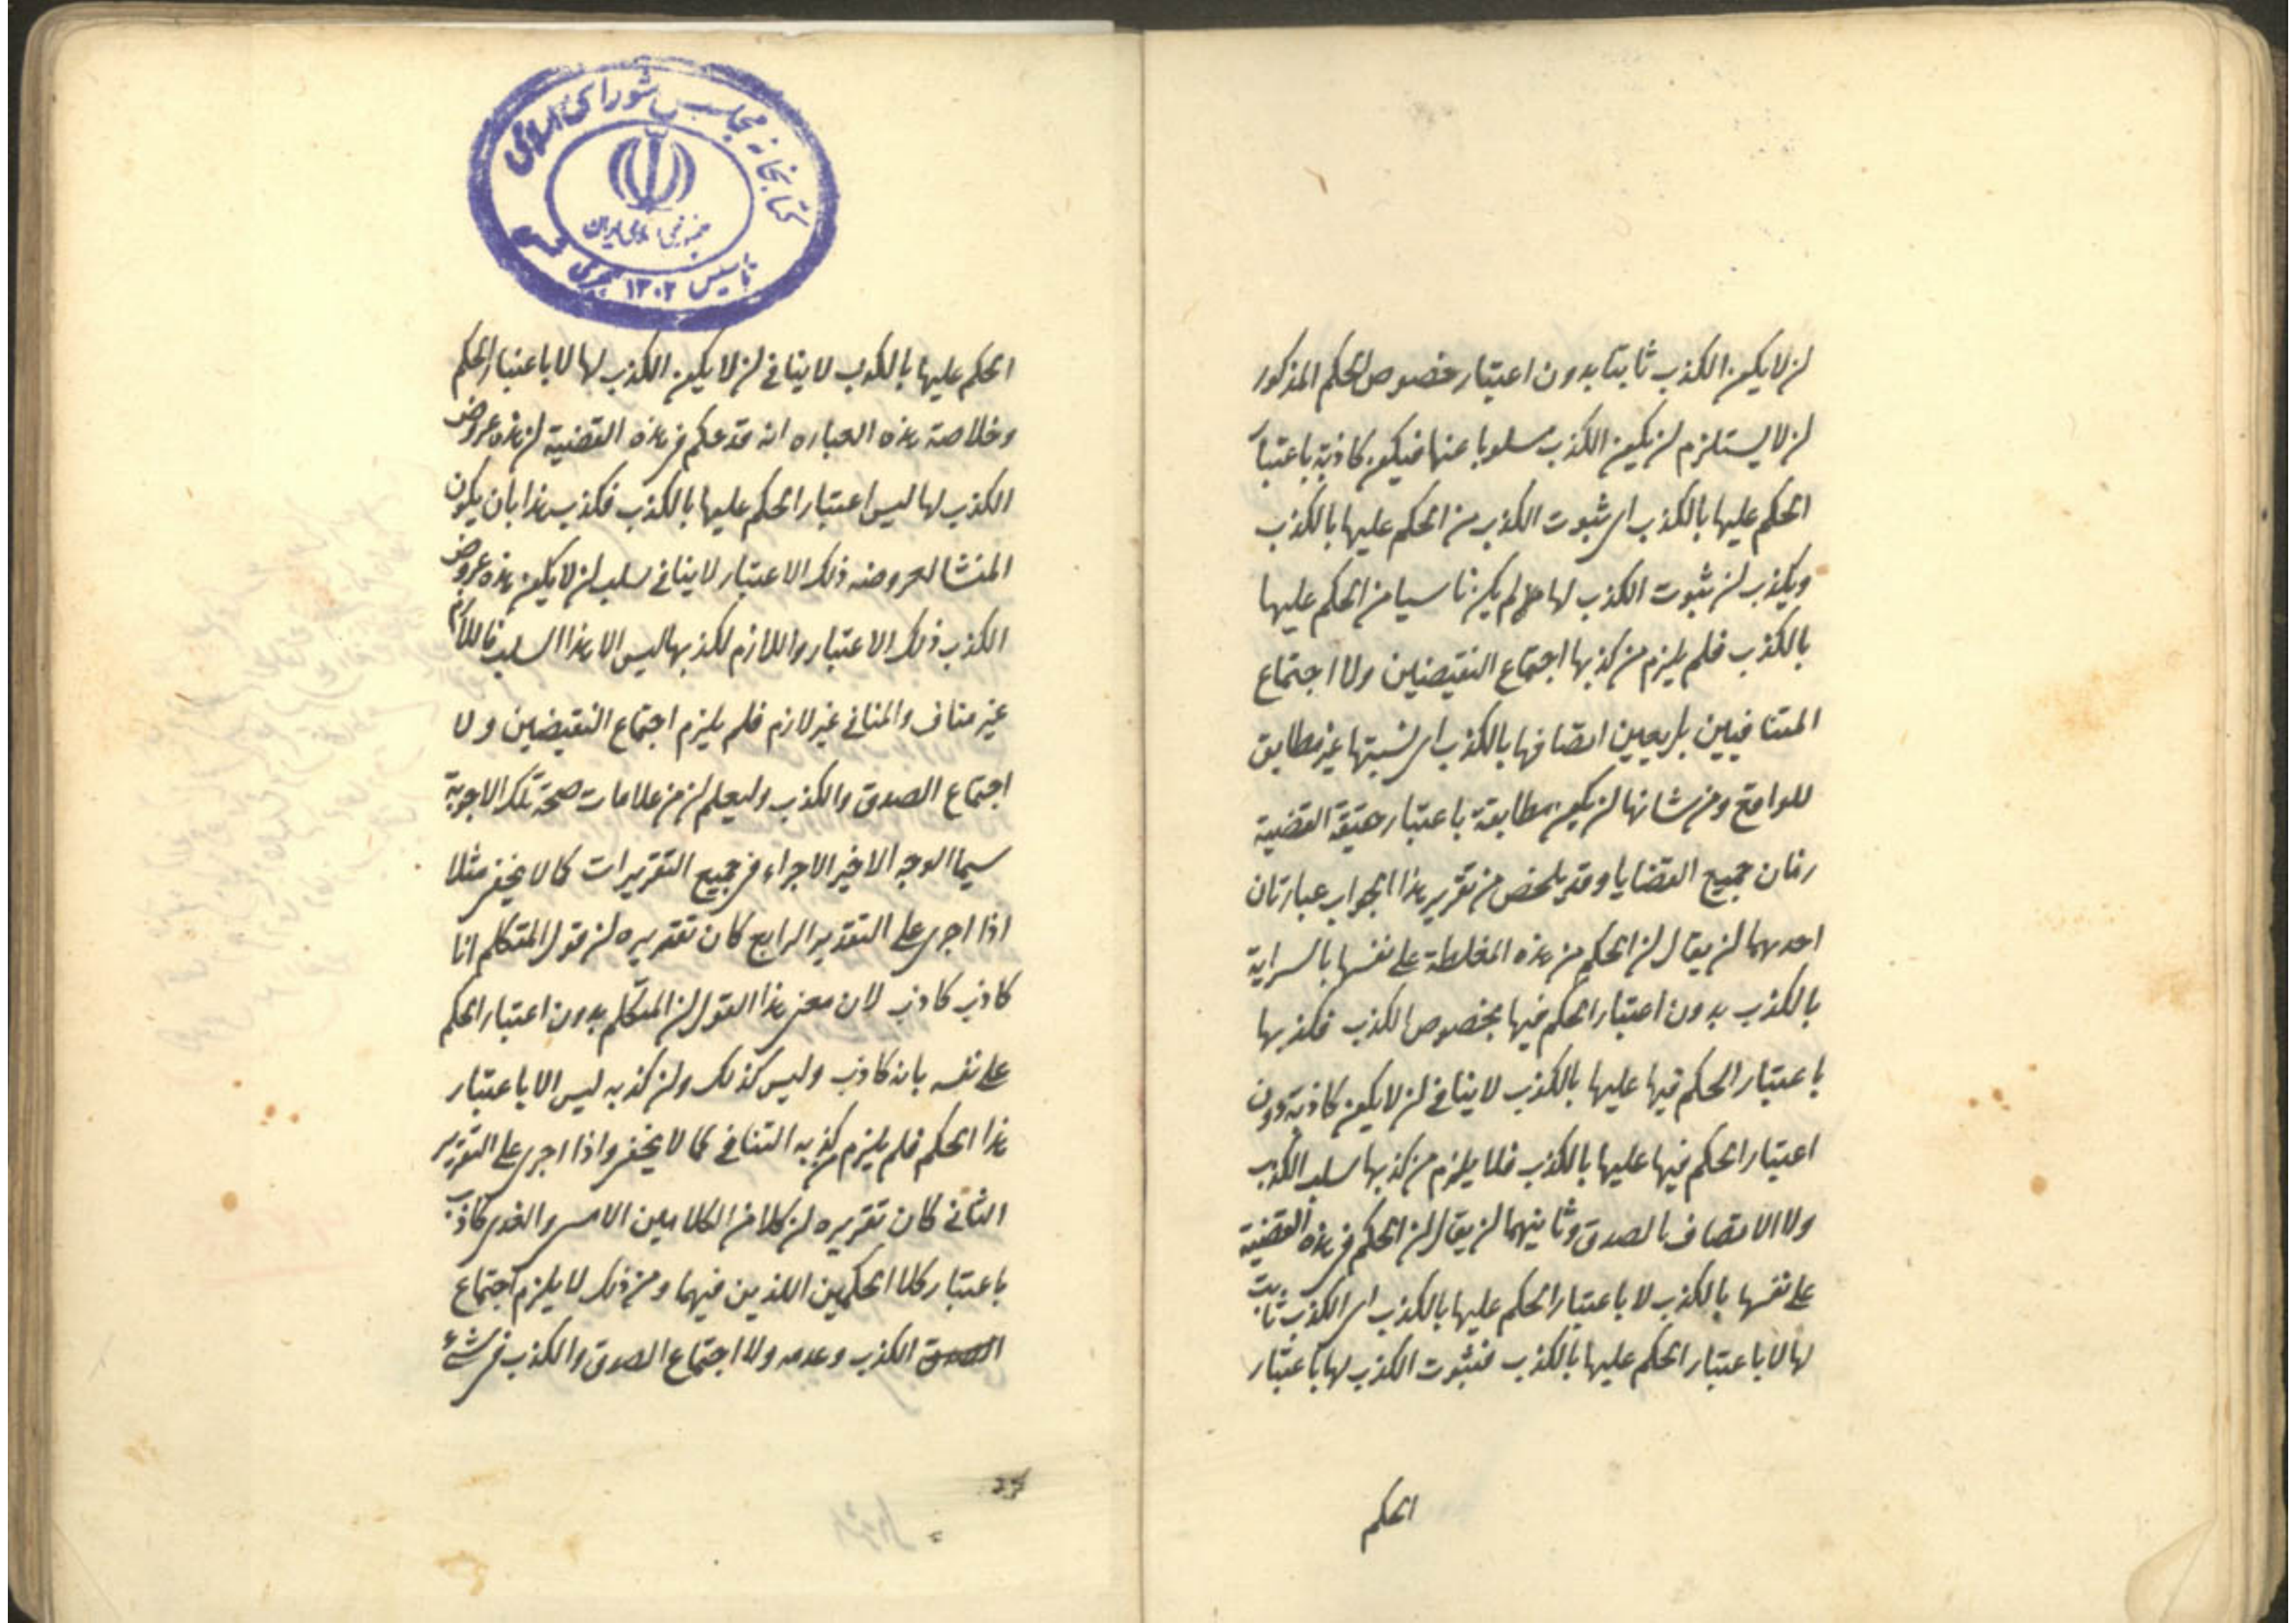 لن لا یکون الکذب ثابتا بدون اعتبار خصوص الحکم المذکور
لن لا یستلزم لن یکون الکذب مسلوبا عنها فیکون کاذبة باعتبار
الحکم علیها بالکذب ای ثبوت الکذب من الحکم علیها بالکذب
ویکذب لن ثبوت الکذب لها لم یکن ناسیا من الحکم علیها
بالکذب فلم یلزم من کذبها اجتماع النقیضین ولا اجتماع
المتنافیین بل یعین اتصافها بالکذب ای نسبتها غیر مطابق
للواقع ومن شانها لن یکون مطابقة باعتبار حقیقة القضیة
جمیع القضایا وقد یلخص من تقریر هذا الجواب عبارتان
احدیهما لن یقال لن الحکم من هذه المغلطة علی نفسها بالسرایة
بالکذب بدون اعتبار الحکم فیها بخصوص الکذب فکذبها
باعتبار الحکم فیها علیها بالکذب لاینافی لن لا یکون کاذبة دون
اعتبار الحکم فیها علیها بالکذب فلا یلزم من کذبها سلب الکذب
ولا الاتصاف بالصدق وثانیهما لن یقال لن الحکم فی هذه القضیة
علی نفسها بالکذب لا باعتبار الحکم علیها بالکذب ای الکذب ثابت
لها لا باعتبار الحکم علیها بالکذب فثبوت الکذب لها باعتبار
الحکم
کتابخانه مجلس شورای اسلامی
جمهوری اسلامی ایران
تأسیس ۱۳۰۲ هجری شمسی
الحکم علیها بالکذب لاینافی لن لا یکون الکذب لها لا باعتبار الحکم
وخلاصة هذه العباره انه قد حکم فی هذه القضیة لن هذه عروض
الکذب لها لیس اعتبار الحکم علیها بالکذب فکذب هذا بان یکون
المنشا لعروضه ذلک الاعتبار لاینافی سلب لن لا یکون هذه عروض
الکذب ذلک الاعتبار واللازم لکذبها لیس الا هذا السلب فاللازم
غیر مناف والمنافی غیر لازم فلم یلزم اجتماع النقیضین ولا
اجتماع الصدق والکذب ولیعلم لن من علامات صحة تلک الاجوبة
سیما الوجه الاخیر الاجراء فی جمیع التقریرات کما لا یخفی مثلا
اذا اجری علی التقدیر الرابع کان تقریره لن قول المتکلم انا
کاذب کاذب لان معنی هذا القول لن المتکلم بدون اعتبار الحکم
علی نفسه بانه کاذب ولیس کذلک ولن کذبه لیس الا باعتبار
هذا الحکم فلم یلزم من کذبه التنافی کما لا یخفی واذا اجری علی التقریر
الثانی کان تقریره لن کلا من الکلامین الامسی والغدی کاذب
باعتبار کلا الحکمین اللذین فیهما ومن ذلک لا یلزم اجتماع
الصدق الکذب وعدمه ولا اجتماع الصدق والکذب فی شیء